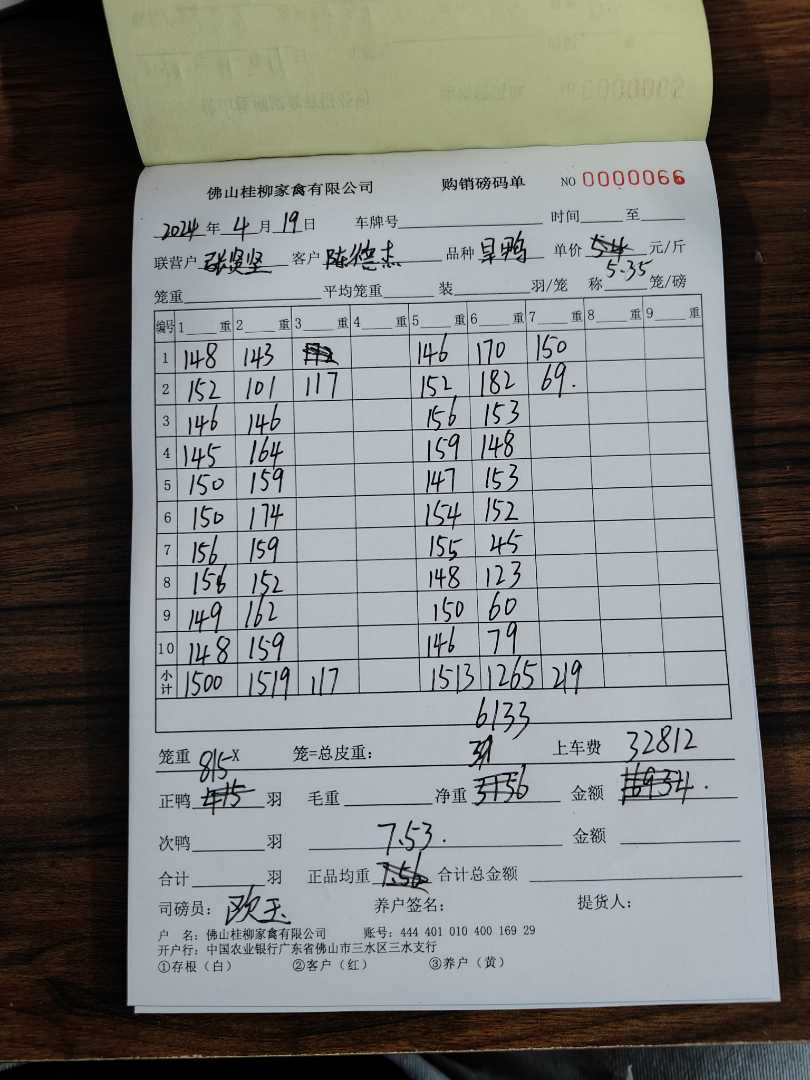 佛山桂柳家禽有限公司 购销磅码单 NO 0000066
2024 年 4 月 19 日 车牌号 时间 至
联营户 张贤坚 客户 陈德杰 品种 旱鸭 单价 5.4 元/斤
5.35
笼重 平均笼重 装 羽/笼 称 笼/磅
编号 1 重 2 重 3 重 4 重 5 重 6 重 7 重 8 重 9 重
1 148 143 146 170 150
2 152 101 117 152 182 69.
3 146 146 156 153
4 145 164 159 148
5 150 159 147 153
6 150 174 154 152
7 156 159 155 45
8 156 152 148 123
9 149 162 150 60
10 148 159 146 79
小计 1500 1519 117 1513 1265 219
6133
笼重 X 笼=总皮重: 上车费 32812
815
正鸭 羽 毛重 净重 金额
次鸭 羽 7.53. 金额
合计 羽 正品均重 7.56 合计总金额
司磅员: 欧玉 养户签名: 提货人:
户 名: 佛山桂柳家禽有限公司 账号: 444 401 010 400 169 29
开户行: 中国农业银行广东省佛山市三水区三水支行
①存根（白） ②客户（红） ③养户（黄）